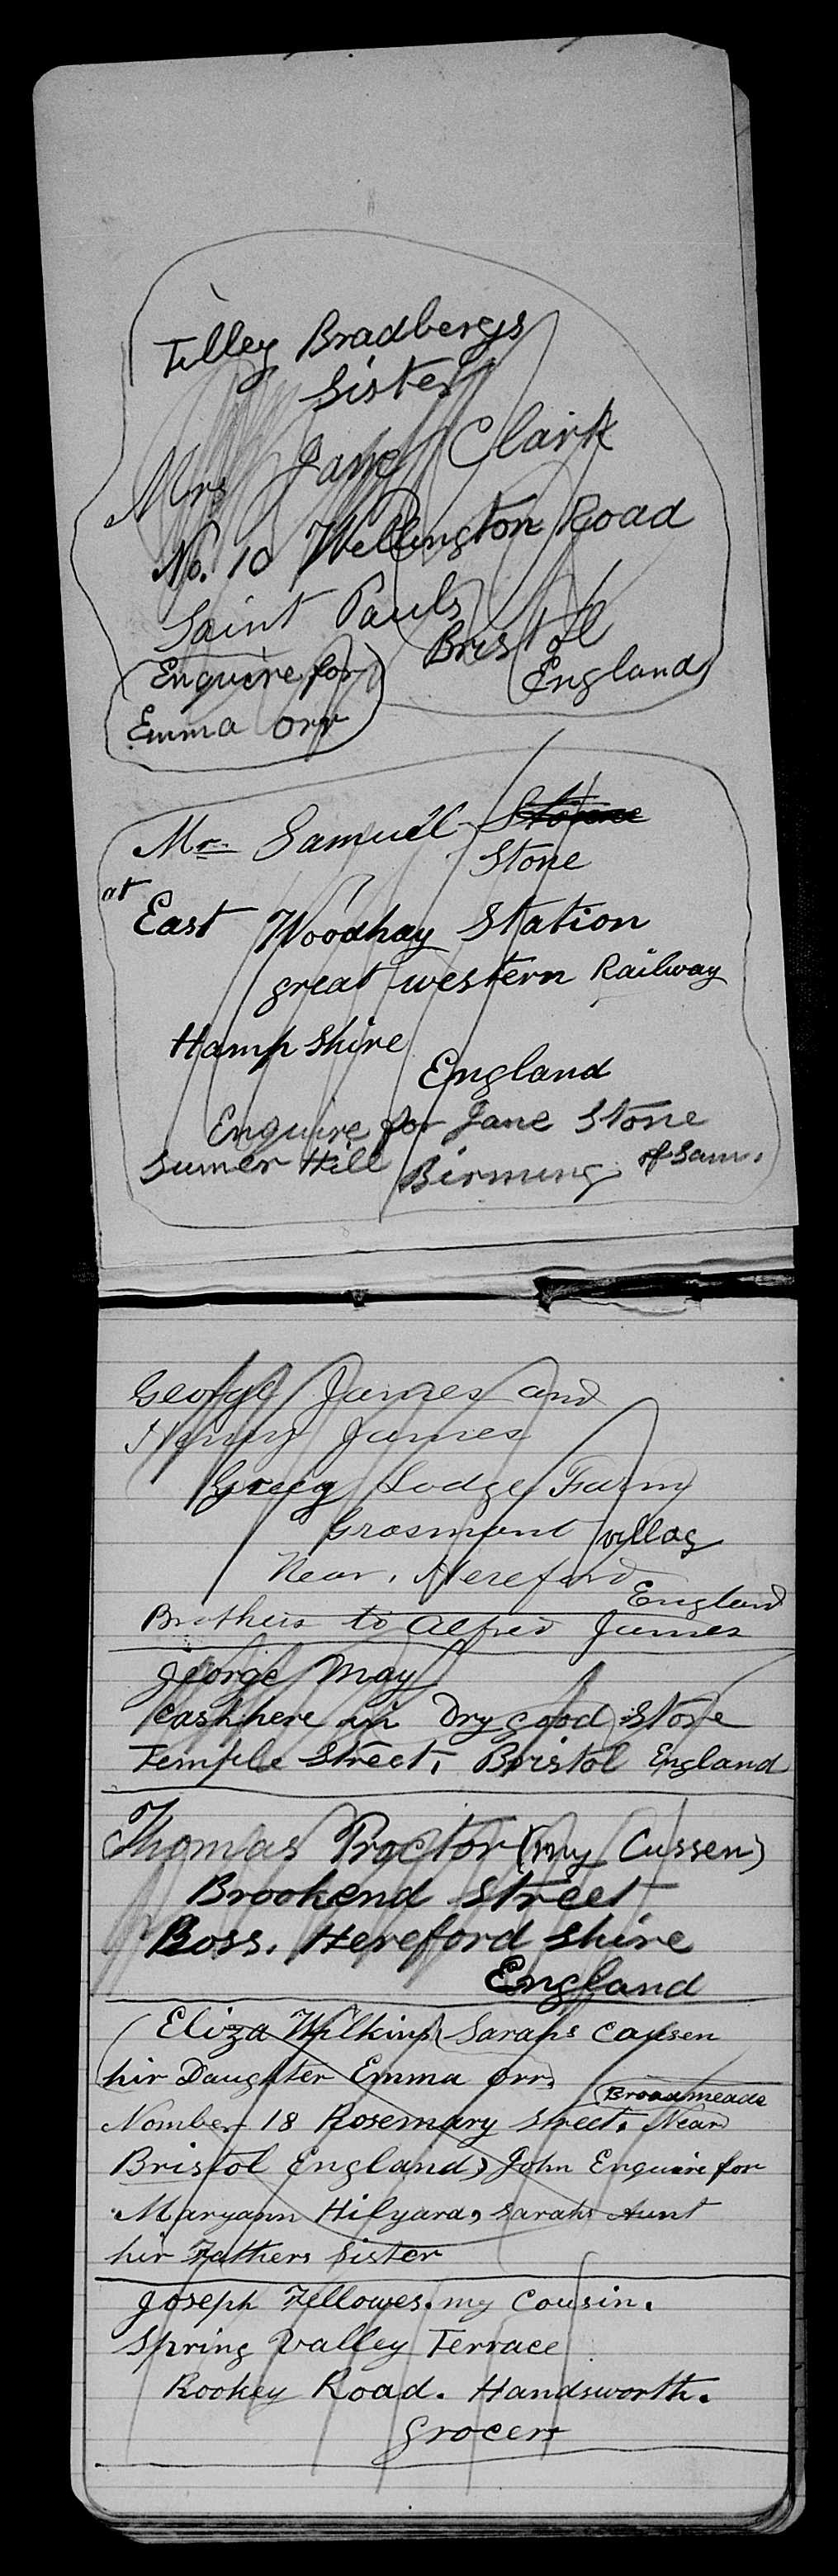 Tilley Bradbergs
Sister
Mrs Jane Clark
No. 10 Wellington Road
Saint Pauls
Bristol
England
Enquire for
Emma Orr
Mr Samuel Storne
Stone
at
East Woodhay Station
great western Railway
Hampshire
England
Enquire for Jane Stone
Sumer Hill Birming of Sam.
George James and
Henry James
Greeg Lodge Farm
Grosmont villag
Near, Hereford
England
Brothers to Alfred James
George May
Cashhere in Dry good Store
Temple Street, Bristol England
Thomas Proctor (my Cussen)
Brookend Street
Boss. Hereford Shire
England
(Eliza Wilkins (Sarahs Causen
hir Daughter Emma Orr.
(Broadmeade
Nomber 18 Rosemary Street. Near
Bristol England) John Enquire for
Maryann Hilyard, Sarahs Aunt
hir Fathers Sister
Joseph Fellowes. my Cousin.
Spring Valley Terrace
Rookey Road. Handsworth.
Grocers